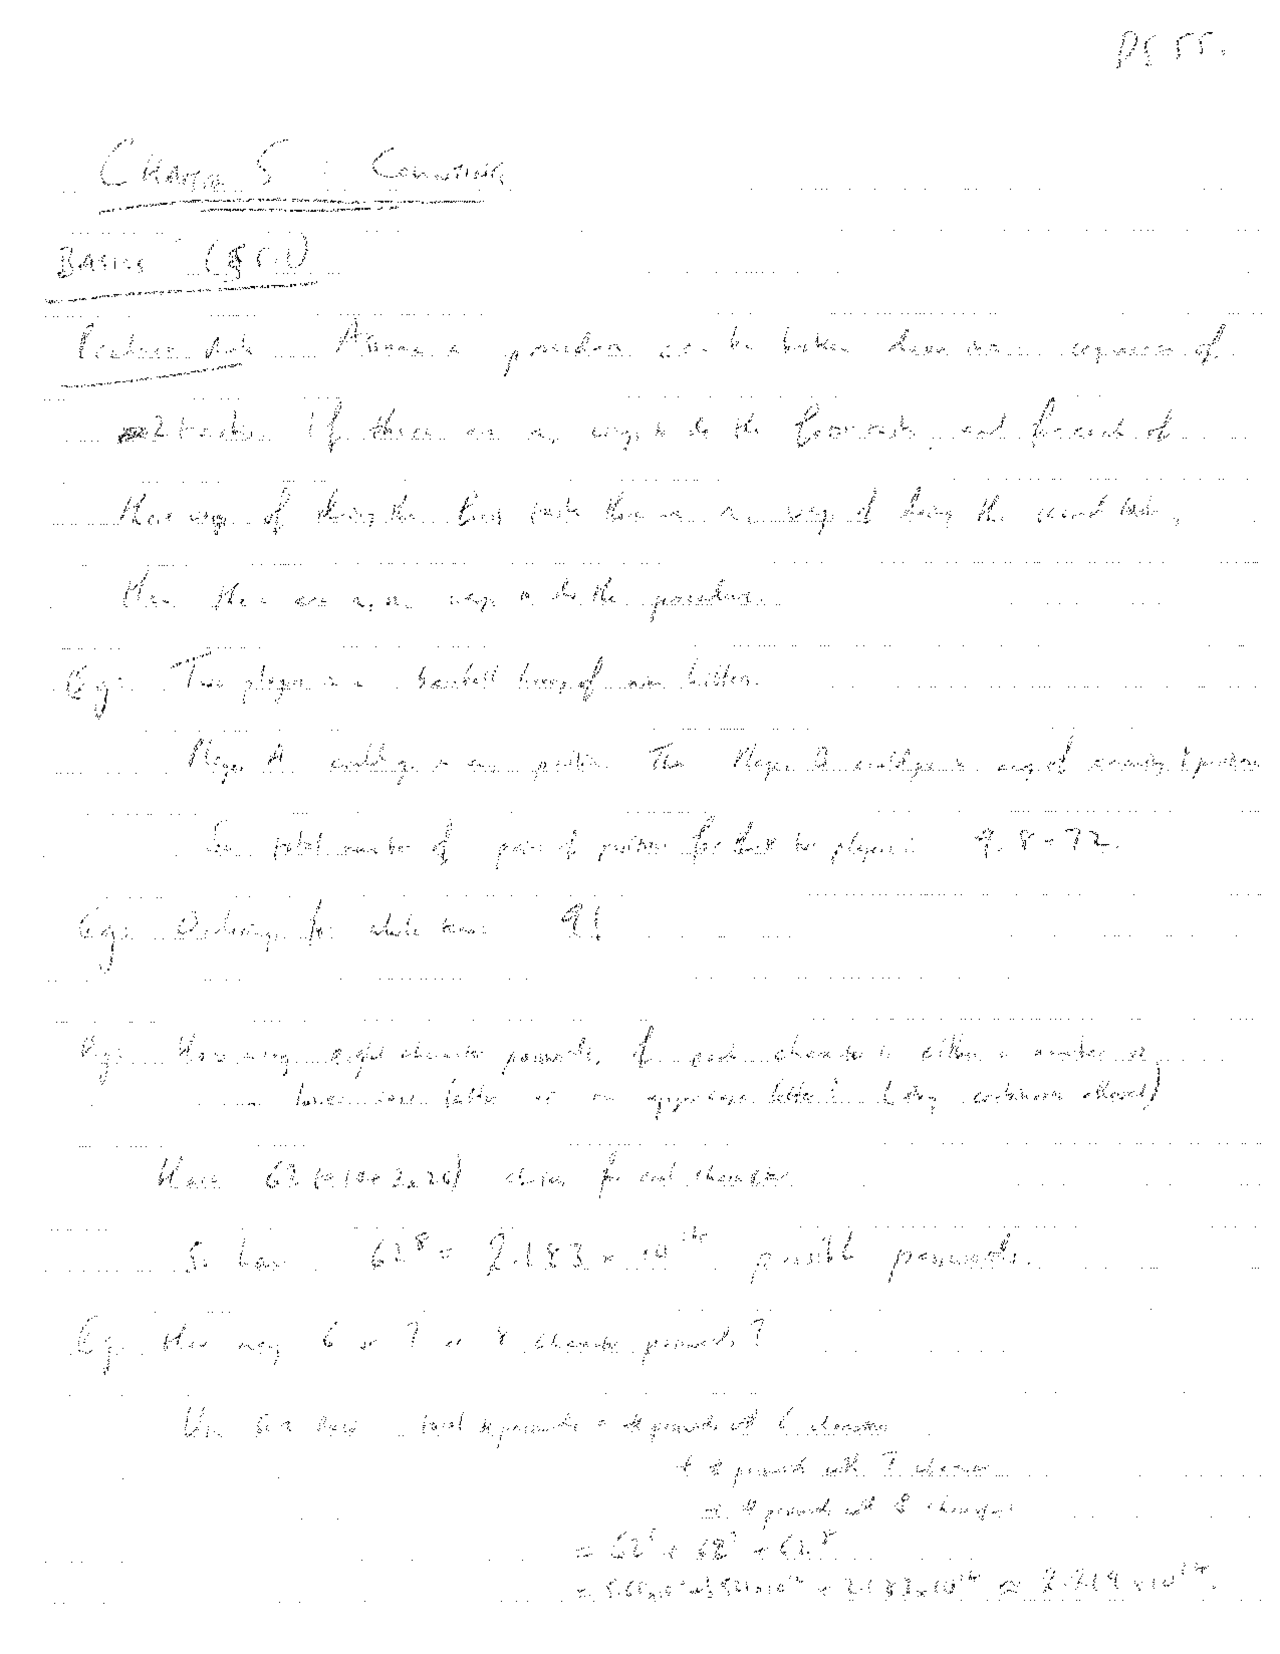 pg 55.
CHAPTER 5 : COUNTING
BASICS (§5.1)
Product Rule Assume a procedure can be broken down into a sequence of
2 tasks. If there are n₁ ways to do the first task, and for each of
these ways of doing the first task there are n₂ ways of doing the second task,
then there are n₁n₂ ways to do the procedure.
Eg: Two players in a baseball lineup of nine hitters.
Player A could go in any position. Then Player B could go in any of remaining 8 positions
So total number of pairs of positions for these two players is 9·8=72.
Eg: Orderings for whole team 9!
Eg: How many eight character passwords, if each character is either a number or
lowercase letter or an uppercase letter? (any continuous allowed)
Have 62 (=10+2×26) choices for each character.
So have 62⁸ = 2.183 × 10¹⁴ possible passwords.
Eg. How many 6 or 7 or 8 character passwords?
Use Sum Rule total # passwords = # passwords with 6 characters
+ # passwords with 7 characters
+ # passwords with 8 characters
= 62⁶ + 62⁷ + 62⁸
+ 2.183×10¹⁴ ≈ 2.219 × 10¹⁴.